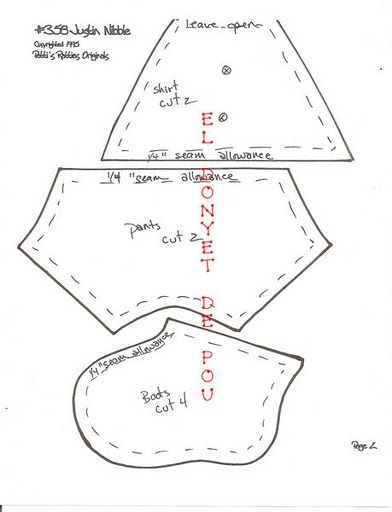 #358 Justin Nibble
Copyrighted 1995
Patti's Ratties Originals
Leave open
shirt
cut 2
1/4" seam allowance
1/4" seam allowance
pants
cut 2
1/4" seam allowance
Boots
cut 4
EL DONYET DE POU
Page 2